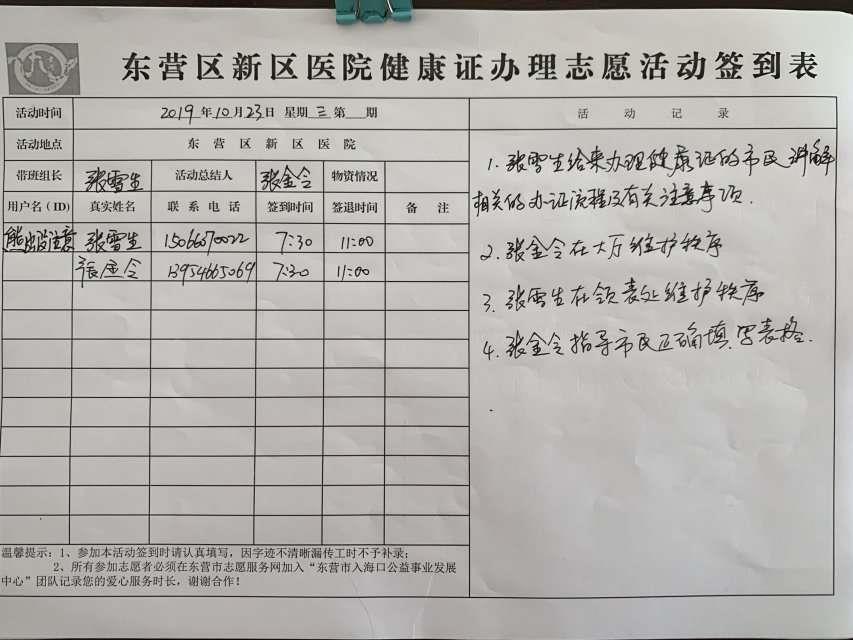 东营区新区医院健康证办理志愿活动签到表
活动时间 2019年10月23日 星期三 第 期
活动地点 东营区新区医院
带班组长 张雪生 活动总结人 张金令 物资情况
用户名(ID) 真实姓名 联系电话 签到时间 签退时间 备注
熊出没注意 张雪生 15066070022 7:30 11:00
张金令 13954665069 7:30 11:00
温馨提示：1、参加本活动签到时请认真填写，因字迹不清晰漏传工时不予补录；
2、所有参加志愿者必须在东营市志愿服务网加入“东营市入海口公益事业发展
中心”团队记录您的爱心服务时长，谢谢合作！
活动记录
1. 张雪生给来办理健康证的市民讲解
相关的办证流程及有关注意事项.
2. 张金令在大厅维护秩序
3. 张雪生在领表处维护秩序
4. 张金令指导市民正确填写表格.